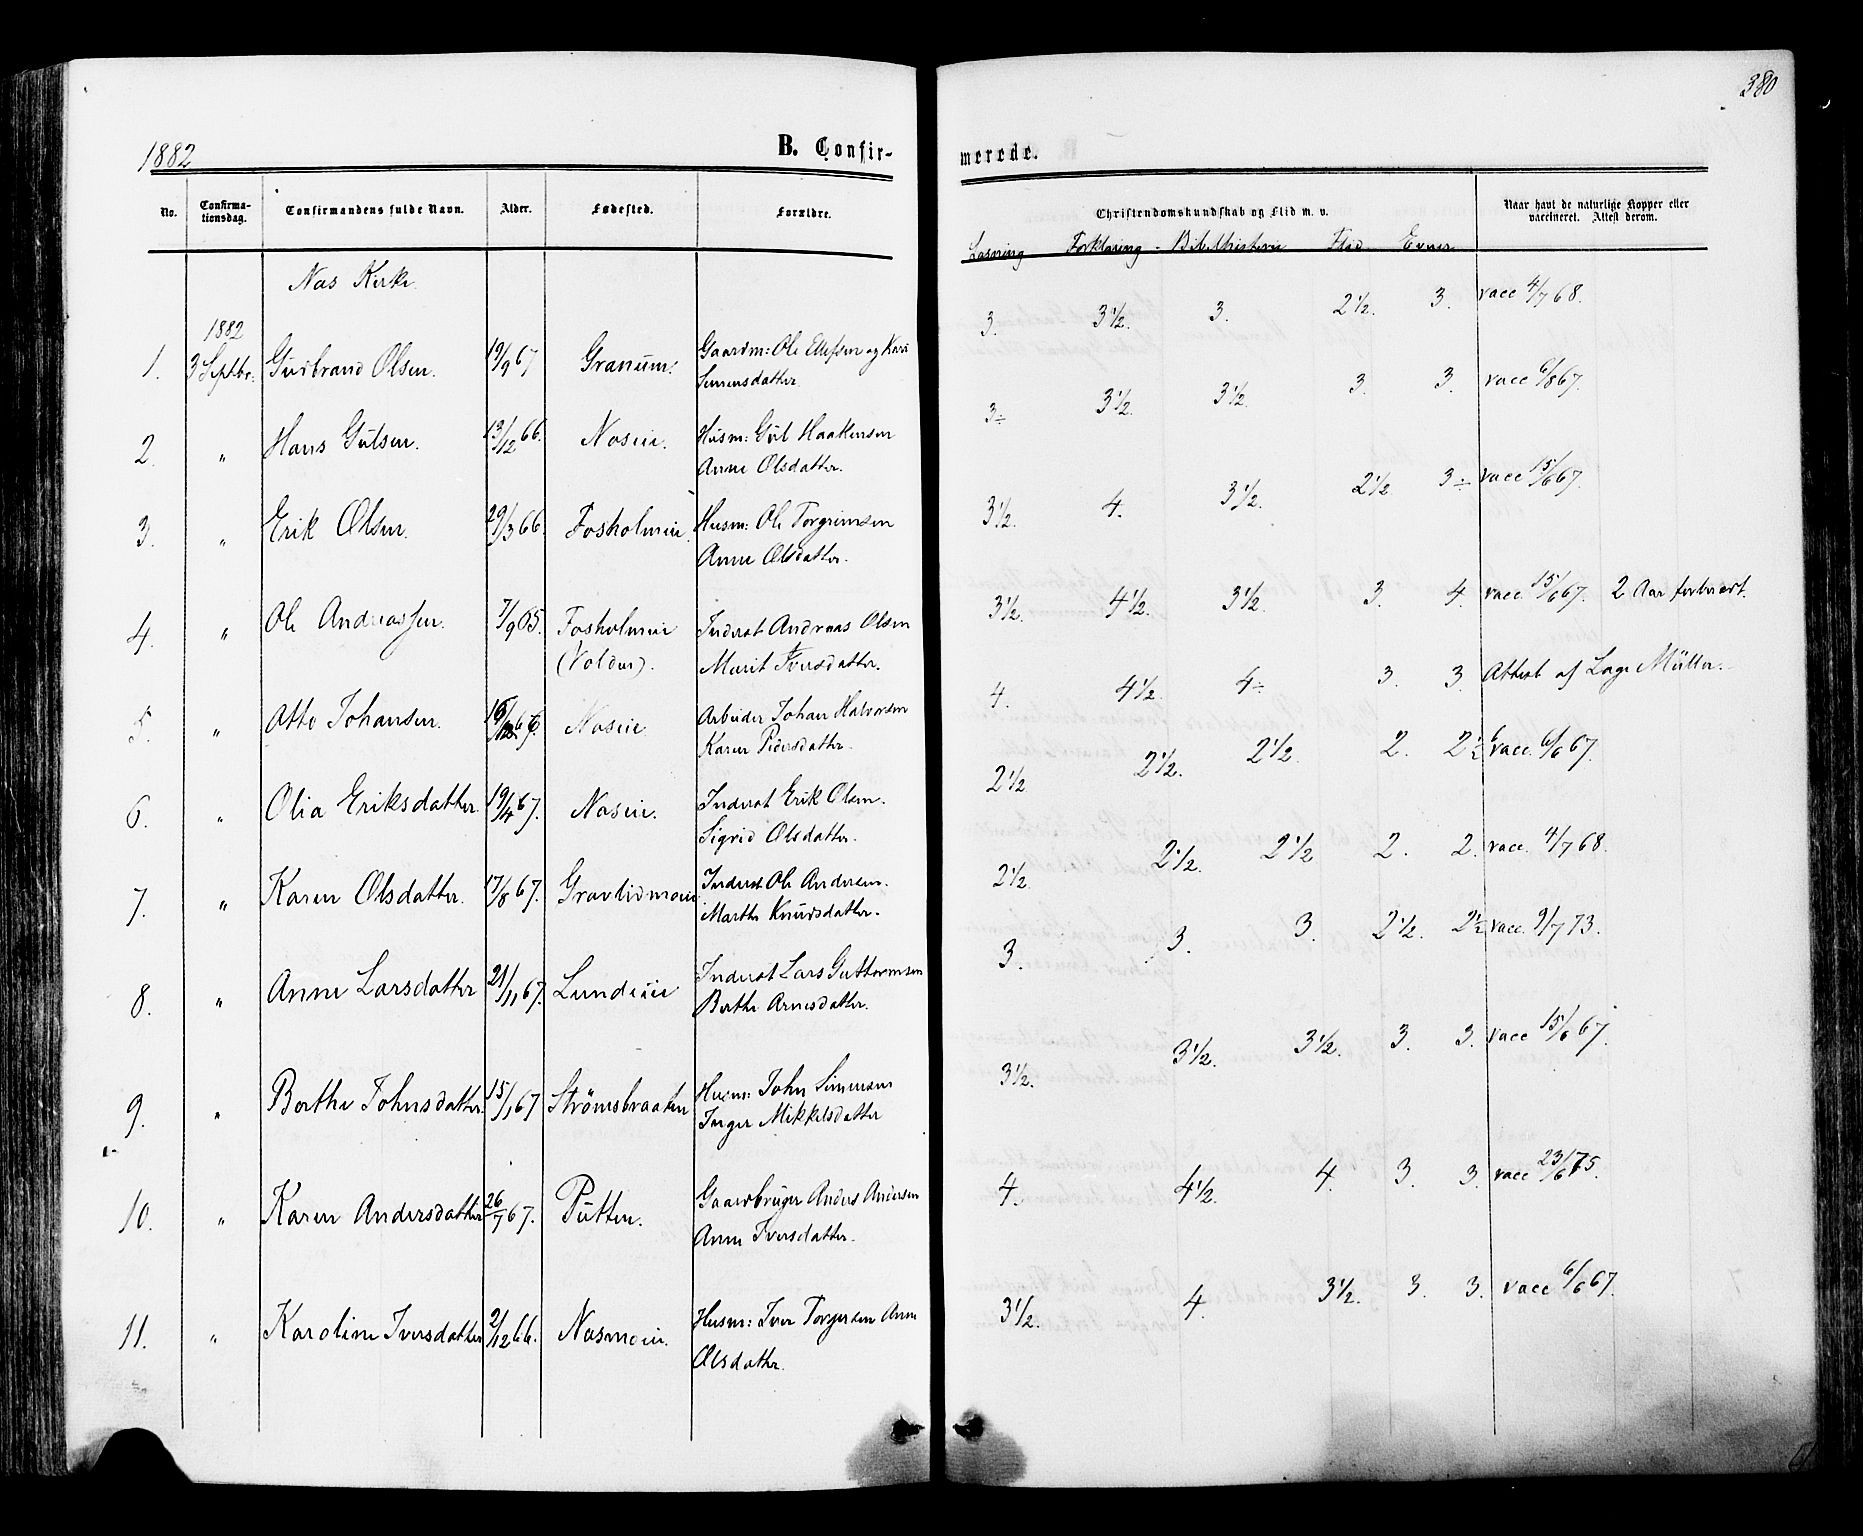 380
1882
B. Confir-
merede.
No.
Confirma-
tionsdag.
Confirmandens fulde Navn.
Alder.
Fødested.
Forældre.
Christendomskundskab og Flid m. v.
Naar havt de naturlige Kopper eller
vaccineret. Attest derom.
Læsning Forklaring - Bibelhistorie Flid Evner
Næs Kirke.
1882
1. 3 Septbr. Gudbrand Olsen. 19/9 67 Granum. Gaardm: Ole Ellefsen og Kari
Simensdatter.
3. 3 1/2. 3. 2 1/2. 3. vacc 4/7 68.
2. " Hans Gulsen. 13/12 66. Næseie. Husm: Gul Haakensen
Anne Olsdatter.
3÷ 3 1/2. 3 1/2. 3. 3. vacc 6/8 67.
3. " Erik Olsen. 29/3 66. Fosholmeie. Husm: Ole Torgrimsen
Anne Olsdatter.
3 1/2. 4. 3 1/2. 2 1/2 3÷ vacc 15/6 67.
4. " Ole Andreassen. 7/9 65. Fosholmeie Inderst Andreas Olsen
(Valdres). Marit Iversdatter.
3 1/2. 4 1/2. 3 1/2. 3. 4. vacc. 15/6 67. 2 Aar forberedt.
5. " Otto Johansen. Næseie Arbeider Johan Halvorsen
Karen Pedersdatter.
4. 4 1/2. 4÷ 3. 3. Attest af Læge Müller.
6. " Olia Eriksdatter. 19/4 67. Næseie. Inderst Erik Olsen.
Sigrid Olsdatter.
2 1/2 2 1/2. 2 1/2. 2. 2 1/2 vacc. 6/6 67.
7. " Karen Olsdatter. 17/8 67. Gravlidmoeie Inderst Ole Andersen.
Marthe Knudsdatter.
2 1/2. 2 1/2. 2 1/2 2. 2. vacc. 4/7 68.
8. " Anne Larsdatter 21/11 67. Lundeie Inderst Lars Guttormsen
Berthe Arnesdatter.
3. 3. 3. 2 1/2. 2 1/2 vacc. 9/7 73.
9. " Berthe Johnsdatter. 15/1 67 Strömsbraaten Husm: John Simensen
Inger Mikkelsdatter
3 1/2. 3 1/2. 3 1/2. 3. 3. vacc 15/6 67.
10. " Karen Andersdatter 26/7 67. Putten. Gaardbruger Anders Andersen
Anne Iversdatter.
4. 4 1/2. 4. 3. 3. vacc 23/6 75.
11. " Karoline Iversdatter 2/12 66. Næsmoeie. Husm: Iver Torgersen Anne
Olsdatter.
3 1/2. 4. 3 1/2. 3. 3. vacc 6/6 67.